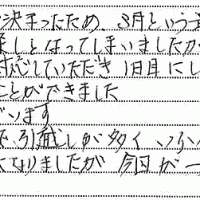 決まったため 3月という
楽しとなってしまいましたが
対応していただき 1日目にし
ことができました
ざいます
で、引越しが多く いろい
になりましたが 今回が一